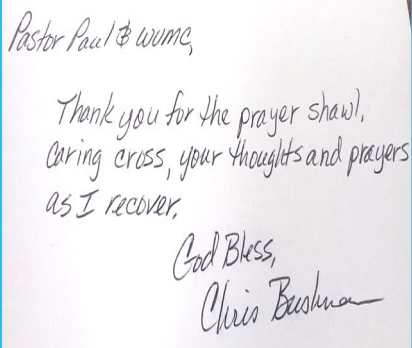 Pastor Paul & WUMC,
Thank you for the prayer shawl,
Caring cross, your thoughts and prayers
as I recover.
God Bless,
Chris